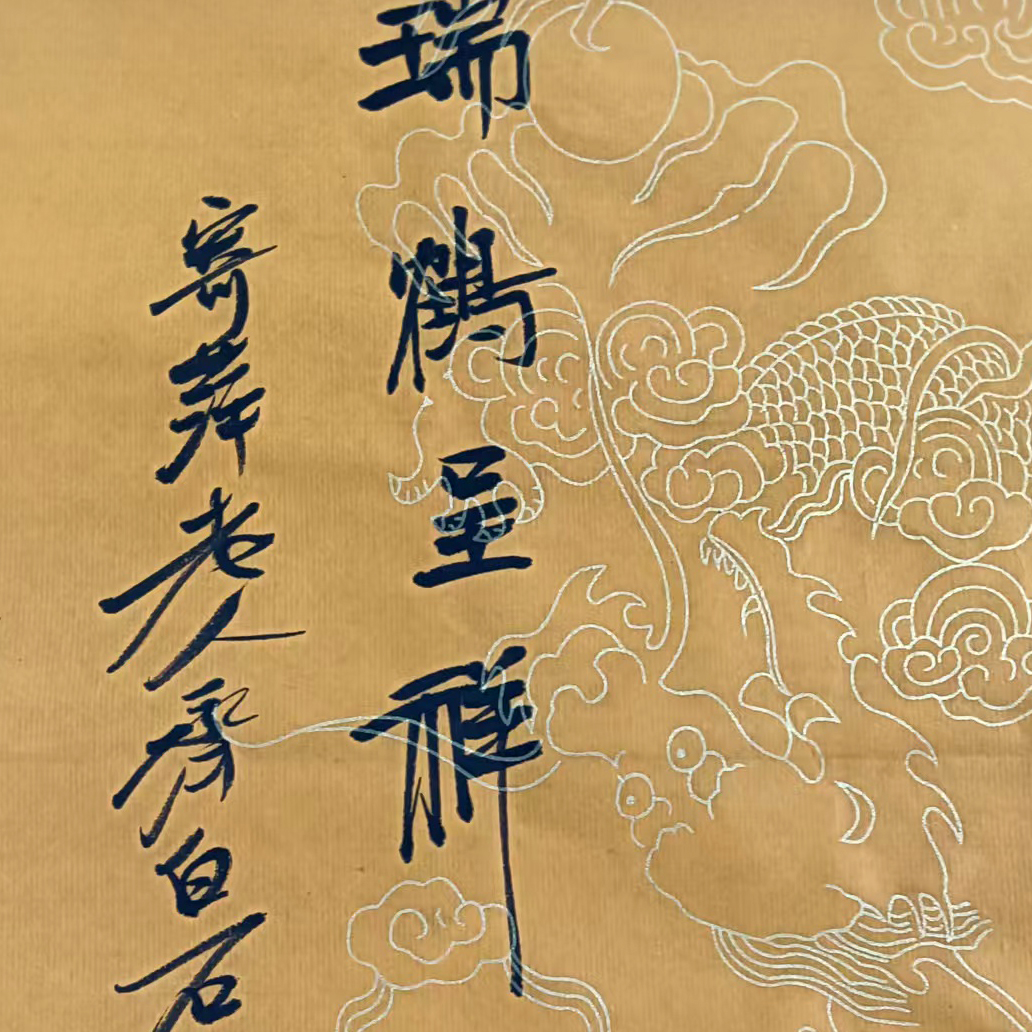 瑞鶴呈祥
寄萍老人齊白石